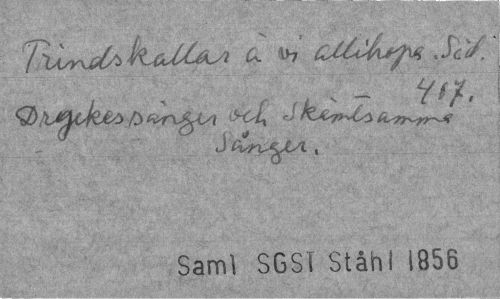 Trindskallar ä vi allihopa. Sid.
407.
Dryckessånger och Skämtsamma
Sånger.
Saml SGST Ståhl 1856